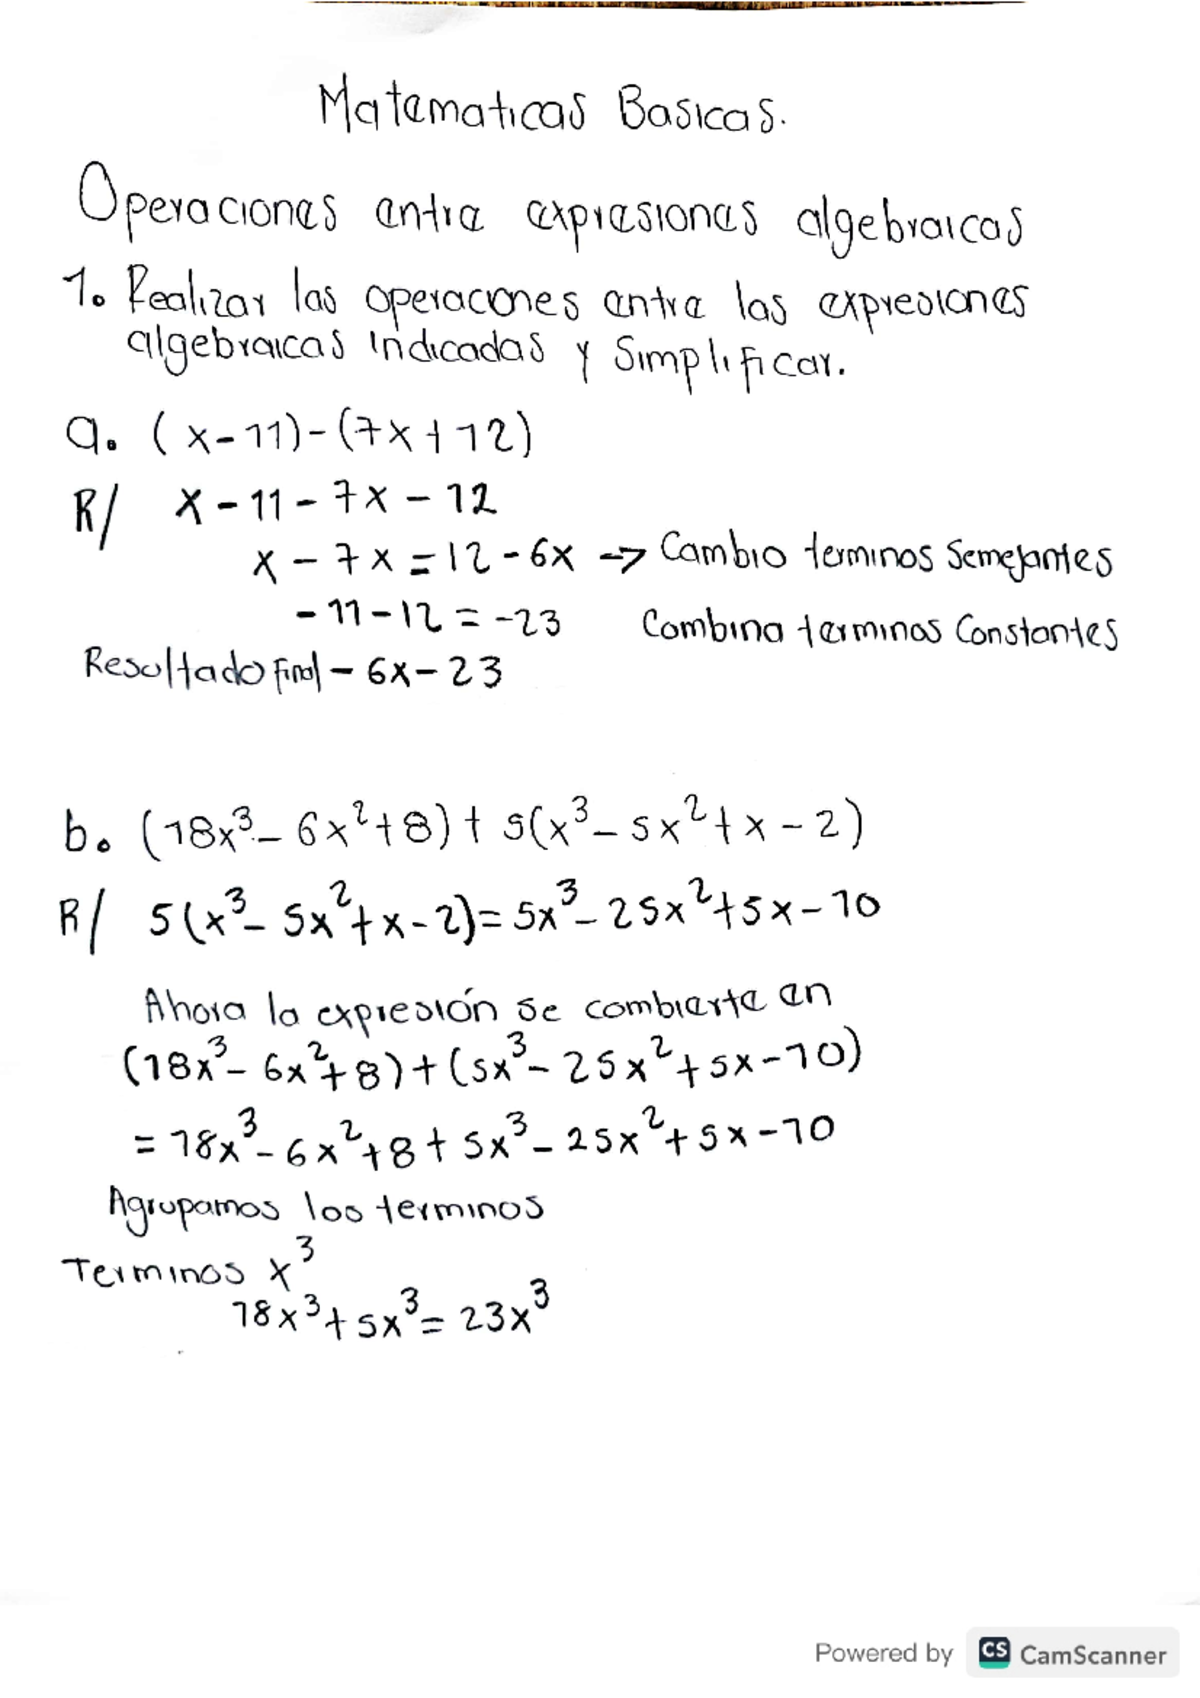 Matematicas Basicas.
Operaciones entre expresiones algebraicas
1. Realizar las operaciones entre las expresiones
algebraicas indicadas y Simplificar.
a. (x-11)-(7x+12)
R/ x-11-7x-12
x-7x=12-6x -> Cambio terminos Semejantes
-11-12=-23 Combina terminos Constantes
Resultado Final -6x-23
b. (18x³-6x²+8)+5(x³-5x²+x-2)
R/ 5(x³-5x²+x-2)=5x³-25x²+5x-10
Ahora la expresión se combierte en
(18x³-6x²+8)+(5x³-25x²+5x-10)
=18x³-6x²+8+5x³-25x²+5x-10
Agrupamos los terminos
Terminos x³
18x³+5x³=23x³
Powered by CS CamScanner